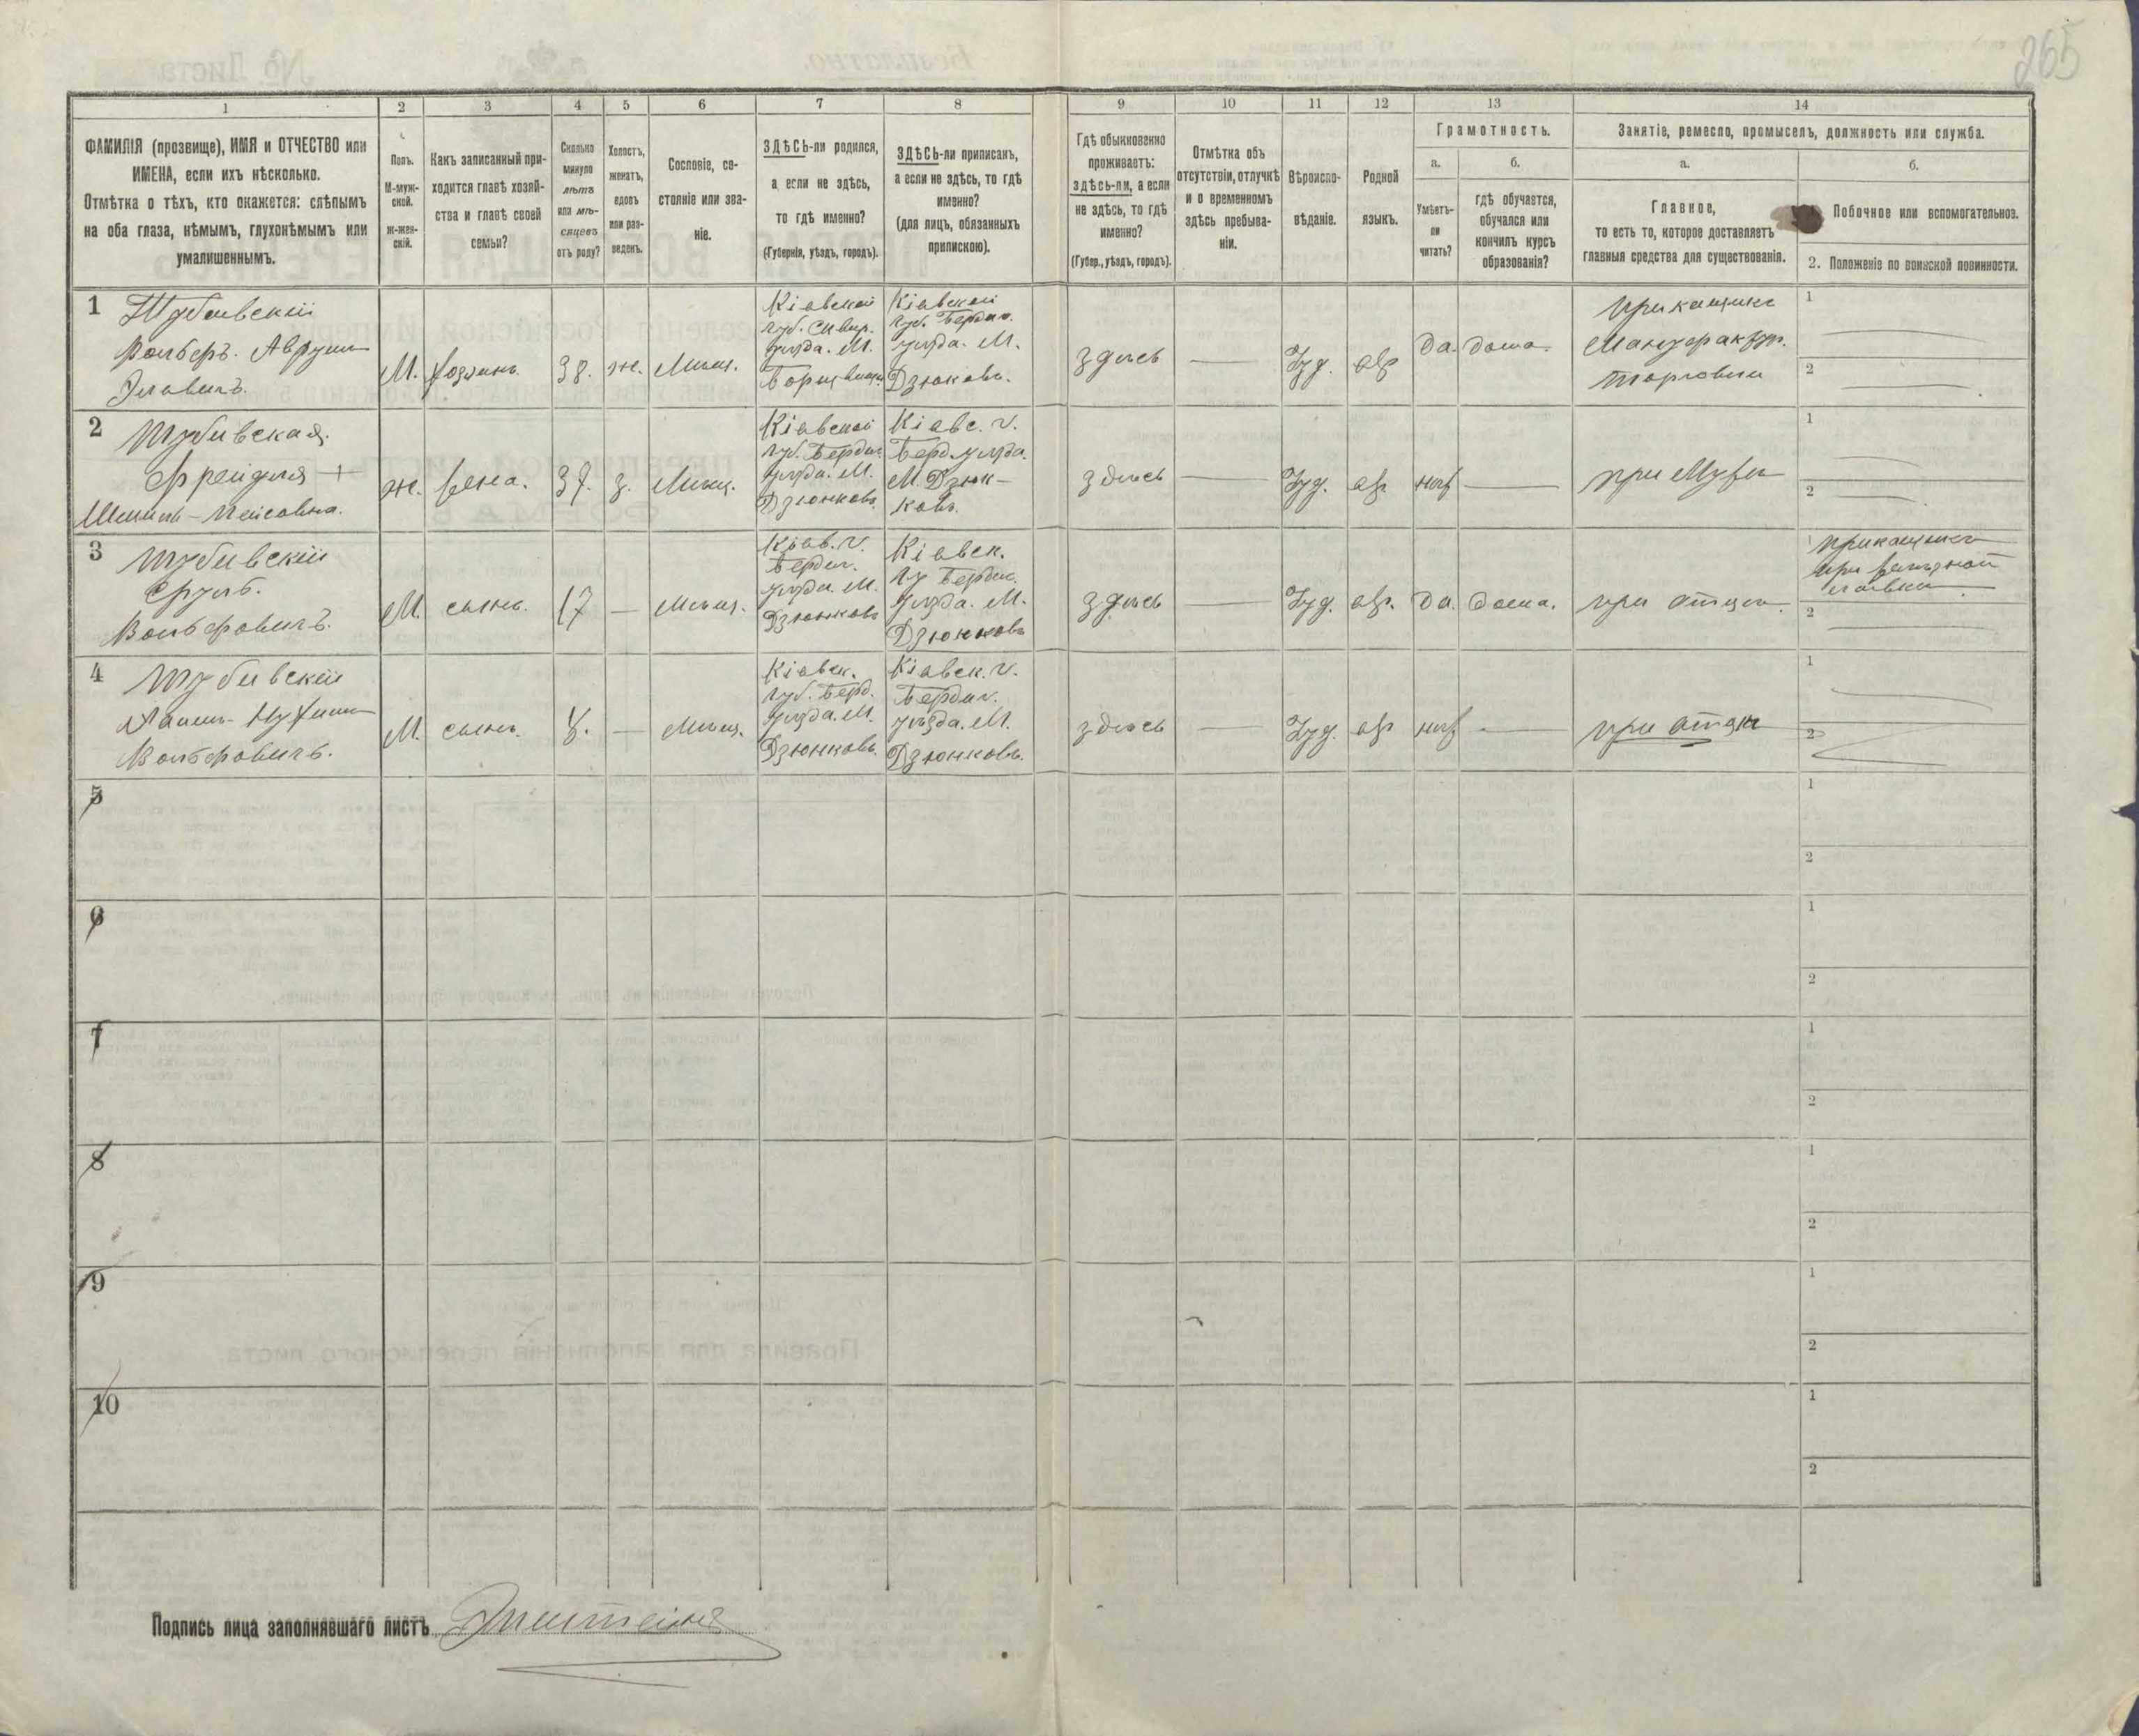 265
1 2 3 4 5 6 7 8 9 10 11 12 13 14
ФАМИЛІЯ (прозвище), ИМЯ и ОТЧЕСТВО или
ИМЕНА, если ихъ нѣсколько.
Отмѣтка о тѣхъ, кто окажется: слѣпымъ
на оба глаза, нѣмымъ, глухонѣмымъ или
умалишеннымъ.
Полъ.
М-муж-
ской.
Ж-жен-
скій.
Какъ записанный при-
ходится главѣ хозяй-
ства и главѣ своей
семьи?
Сколько
минуло
лѣтъ
или мѣ-
сяцевъ
отъ роду?
Холостъ,
женатъ,
вдовъ
или раз-
веденъ.
Сословіе, со-
стояніе или зва-
ніе.
ЗДѢСЬ-ли родился,
а если не здѣсь,
то гдѣ именно?
(Губернія, уѣздъ, городъ).
ЗДѢСЬ-ли приписанъ,
а если не здѣсь, то гдѣ
именно?
(для лицъ, обязанныхъ
припискою).
Гдѣ обыкновенно
проживаетъ:
здѣсь-ли, а если
не здѣсь, то гдѣ
именно?
(Губер., уѣздъ, городъ).
Отмѣтка объ
отсутствіи, отлучкѣ
и о временномъ
здѣсь пребыва-
ніи.
Вѣроиспо-
вѣданіе.
Родной
языкъ.
Грамотность.
а.
Умѣетъ-
ли
читать?
б.
гдѣ обучается,
обучался или
кончилъ курсъ
образованія?
Занятіе, ремесло, промыселъ, должность или служба.
а.
Главное,
то есть то, которое доставляетъ
главныя средства для существованія.
б.
Побочное или вспомогательное.
2. Положеніе по воинской повинности.
1
Вольфъ. Аврум
М. хозяинъ. 38. ж. Мѣщ.
Кіевской
губ. Сквир.
уѣзда. М.
Кіевской
губ. Бердич.
уѣзда. М.
Дзюковъ.
здѣсь — Іуд. евр Да. дома.
прикащикъ
Мануфактур.
торговли
1
2
2 Шубивская.
Фрейдля +
ж. жена. 37. з. Мѣщ.
Кіевской
губ. Бердич.
уѣзда. М.
Дзюнковъ.
Кіевс. г.
Берд. уѣзда.
М. Дзюн-
ковъ.
здѣсь — Іуд. евр нѣт — при Мужѣ
1
2
3 Шубивскій
Сруль.
Вольфовичъ.
М. сынъ. 17 — Мѣщ.
Кіев. г.
Бердич.
уѣзда М.
Дзюнковъ
Кіевск.
гу Бердич.
уѣзда. М.
Дзюнковъ
здѣсь — Іуд. евр. Да. дома. при отцѣ.
1 прикащикъ
при
лавкѣ.
2
4 Шубивскій
Вольфовичъ.
М. сынъ. — Мѣщ.
Кіевск.
губ. Берд.
уѣзда. М.
Дзюнковъ.
Кіевск. г.
Бердич.
уѣзда. М.
Дзюнковъ.
здѣсь — Іуд. евр нѣт — при отцѣ
1
2
5
1
2
6
1
2
7
1
2
8
1
2
9
1
2
10
1
2
Подпись лица заполнявшаго листъ